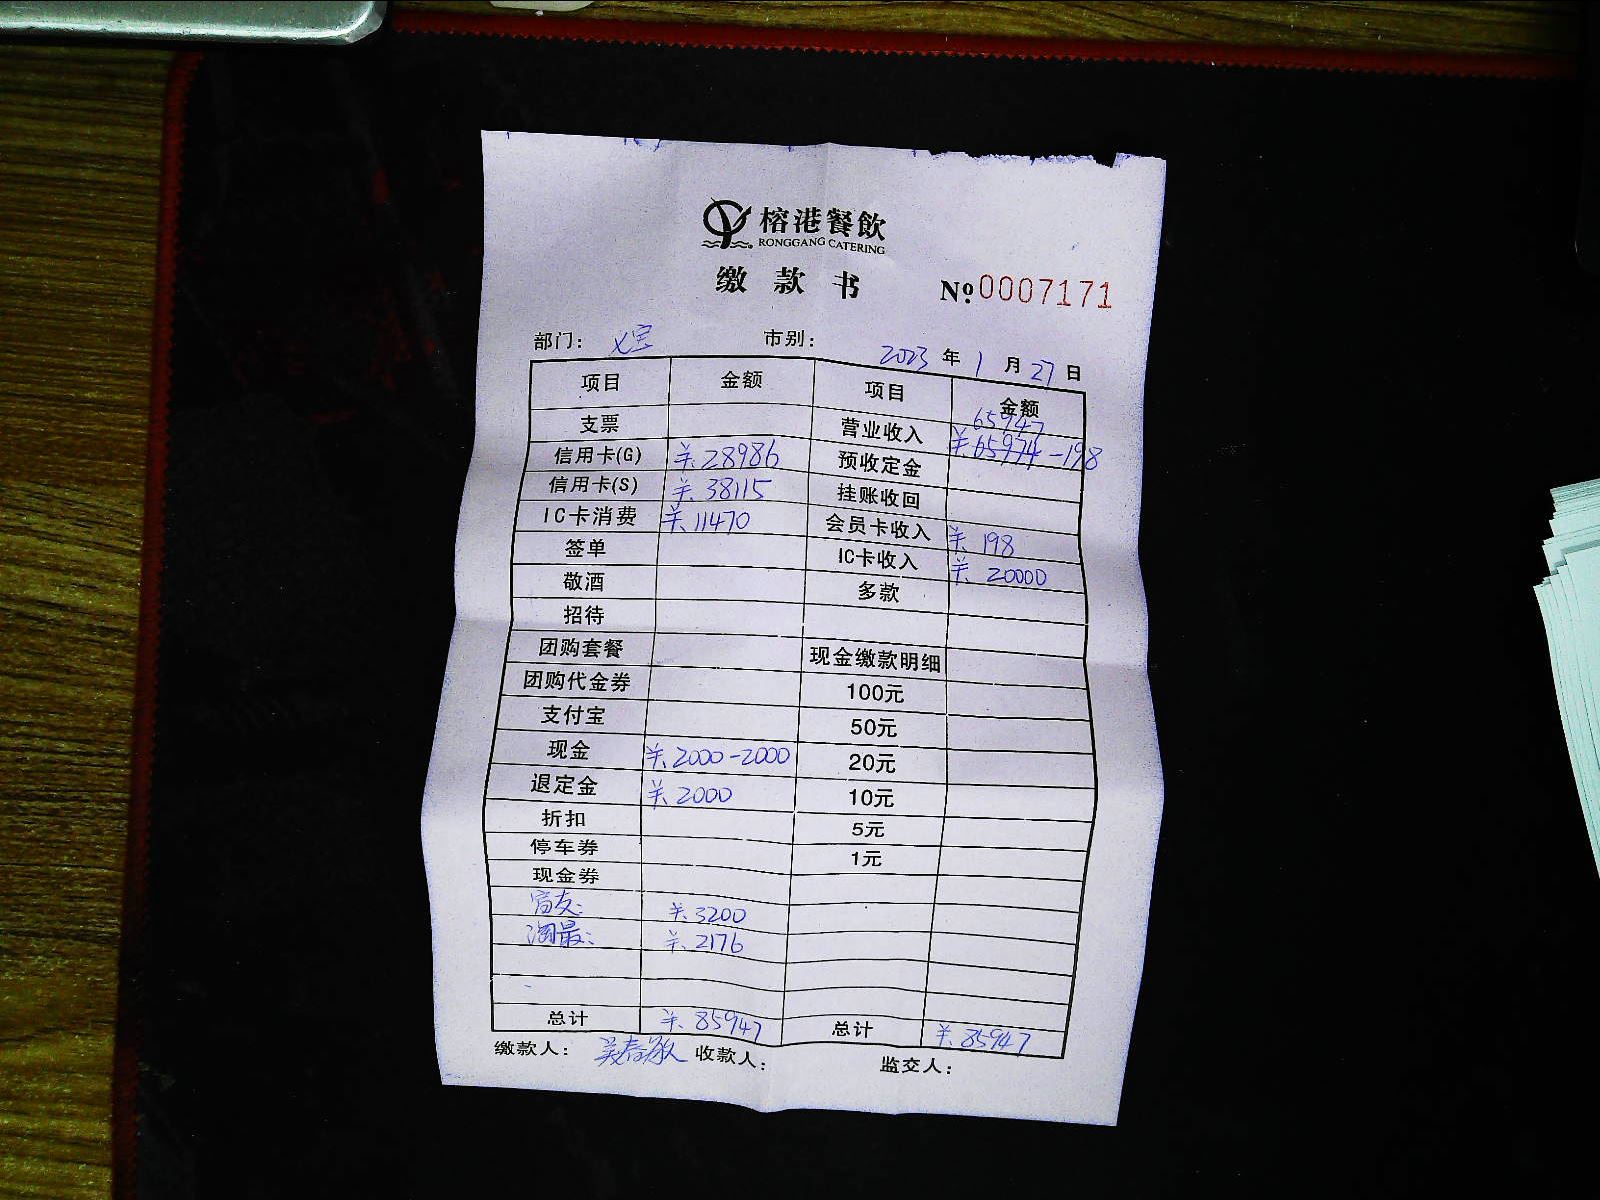 榕港餐飲
RONGGANG CATERING
缴款书 №0007171
部门： 市别： 2023年1月27日
项目 金额 项目 金额
65947
支票 营业收入 ¥65974-198
信用卡(G) ¥.28986 预收定金
信用卡(S) ¥.38115 挂账收回
IC卡消费 ¥.11470 会员卡收入 ¥.198
签单 IC卡收入 ¥.20000
敬酒 多款
招待
团购套餐 现金缴款明细
团购代金券 100元
支付宝 50元
现金 ¥.2000-2000 20元
退定金 ¥.2000 10元
折扣 5元
停车券 1元
现金券
¥.3200
¥.2176
总计 ¥.85947 总计 ¥.85947
缴款人： 收款人： 监交人：